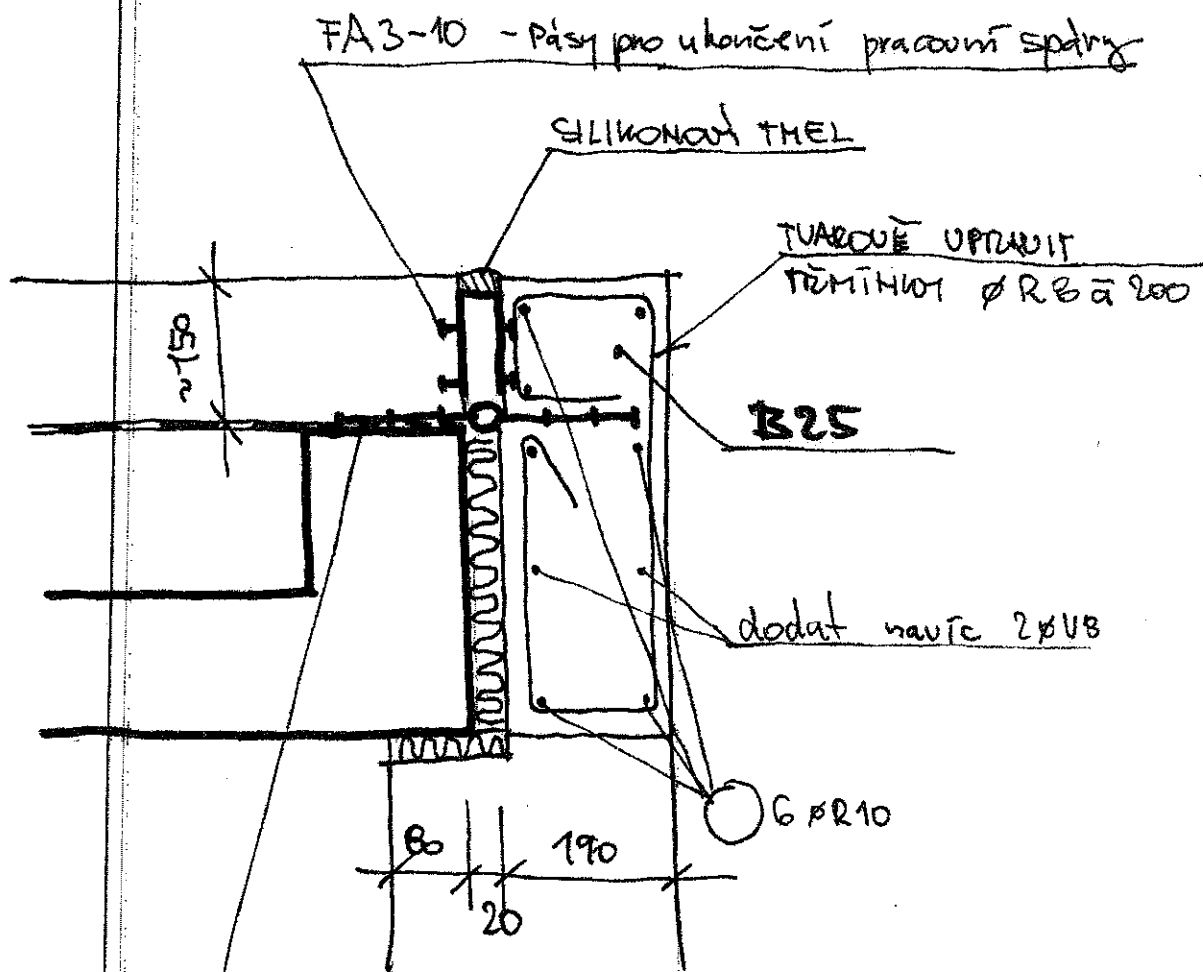 FA3-10 - Pásy pro ukončení pracovní spáry
SILIKONOVÝ TMEL
TVAROVĚ UPRAVIT
TŘMÍNKY ø R8 ā 200
~150
B25
dodat navíc 2øV8
6 øR10
80
20
190